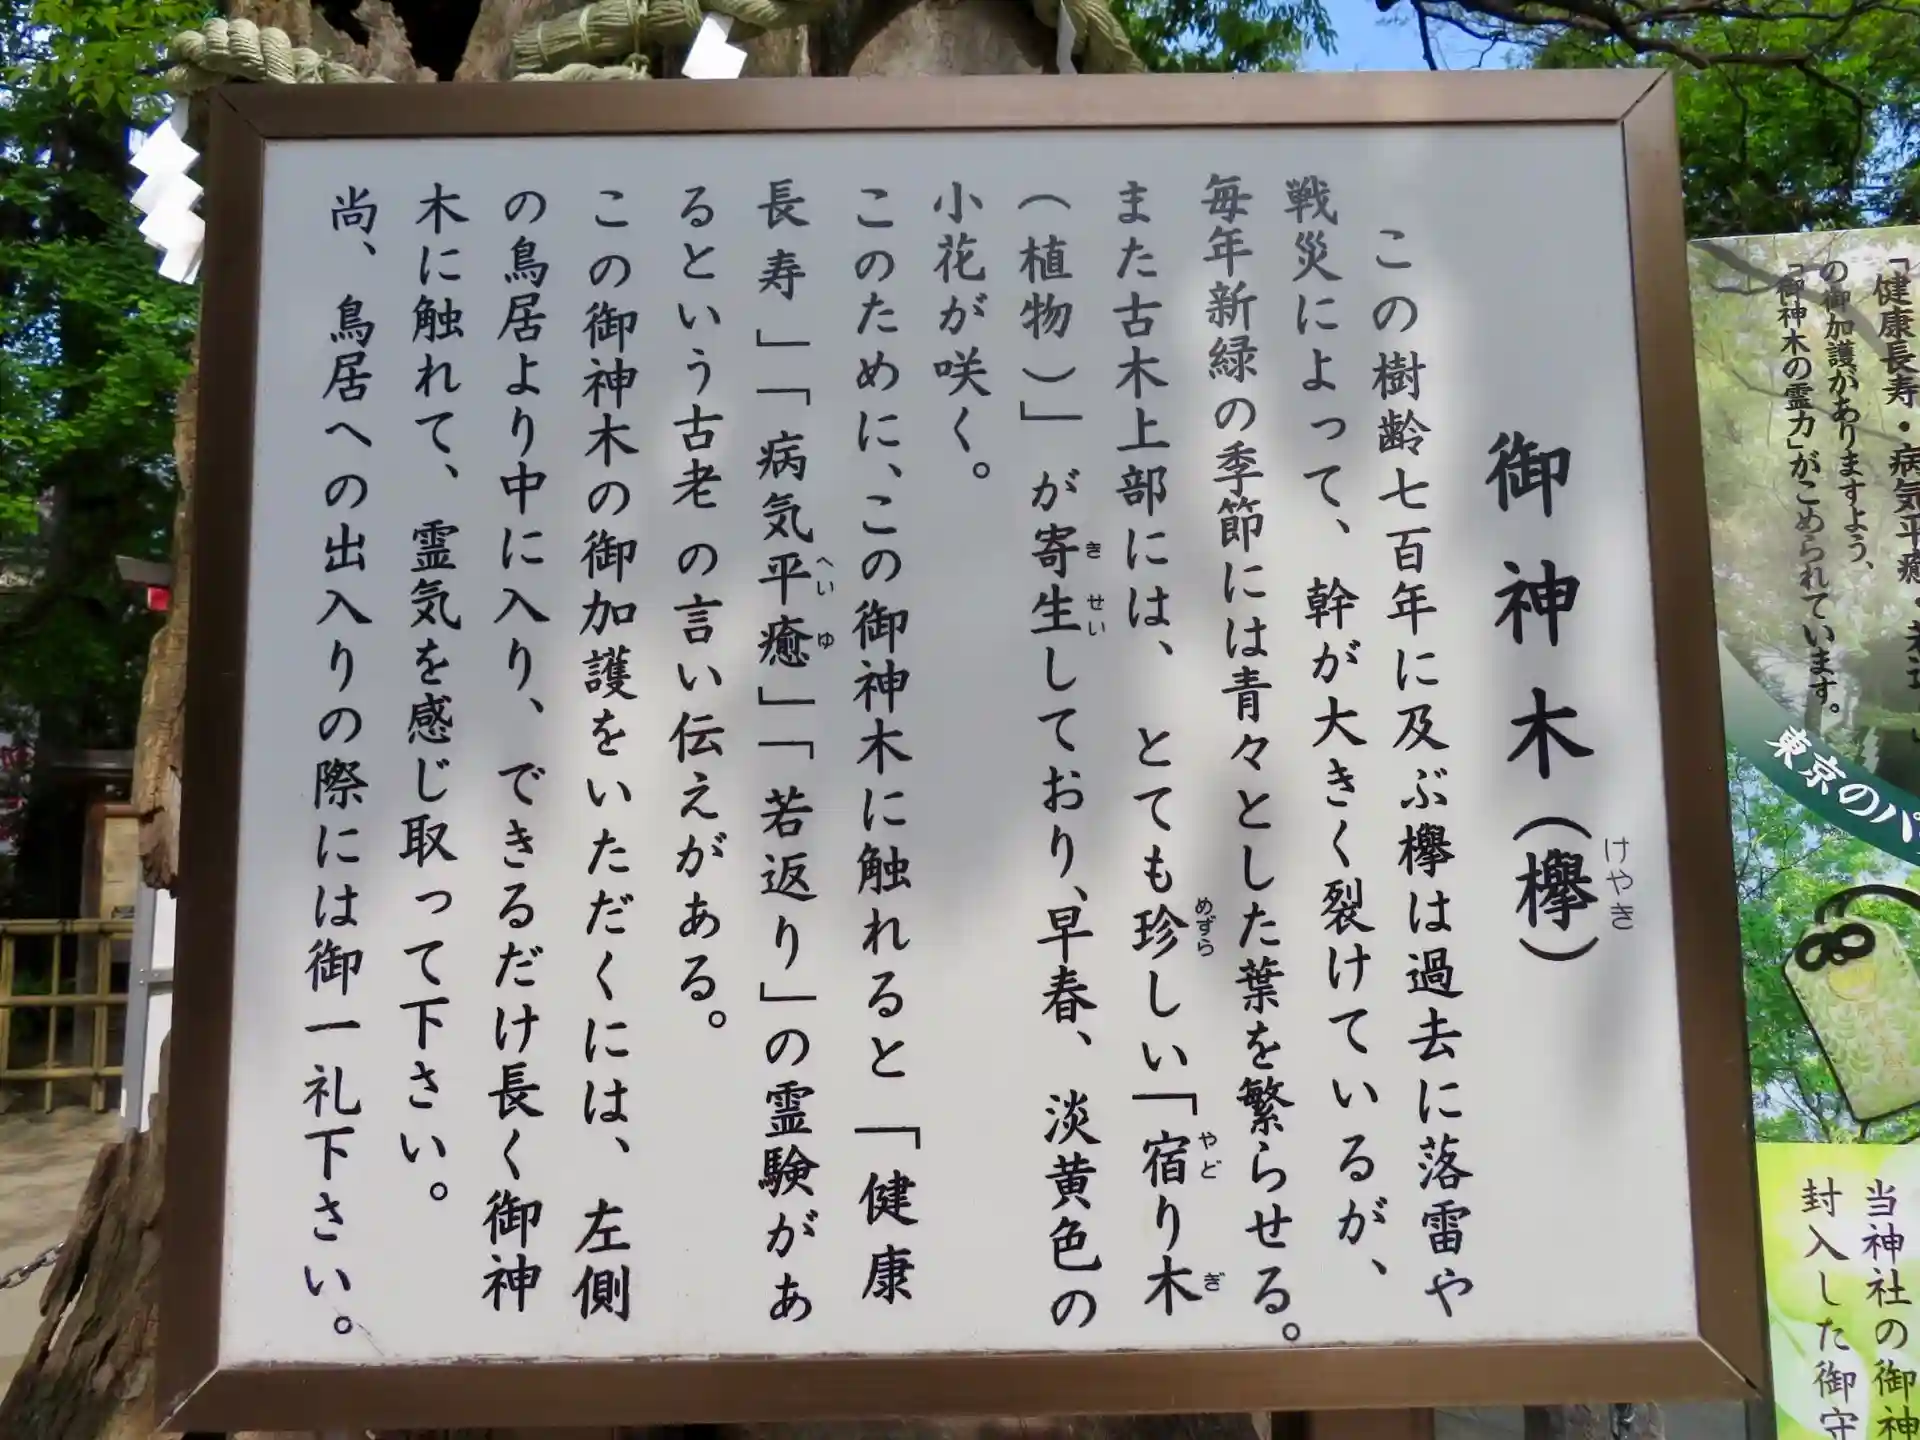 御神木（欅）
けやき
この樹齢七百年に及ぶ欅は過去に落雷や
戦災によって、幹が大きく裂けているが、
毎年新緑の季節には青々とした葉を繁らせる。
また古木上部には、とても珍しい「宿り木
めずら
やど
ぎ
（植物）」が寄生しており、早春、淡黄色の
き
せい
小花が咲く。
このために、この御神木に触れると「健康
長寿」「病気平癒」「若返り」の霊験があ
へい
ゆ
るという古老の言い伝えがある。
この御神木の御加護をいただくには、左側
の鳥居より中に入り、できるだけ長く御神
木に触れて、霊気を感じ取って下さい。
尚、鳥居への出入りの際には御一礼下さい。
「健康長寿・病気平癒・若返
の御加護がありますよう、
「御神木の霊力」がこめられています。
東京のパ
当神社の御神
封入した御守